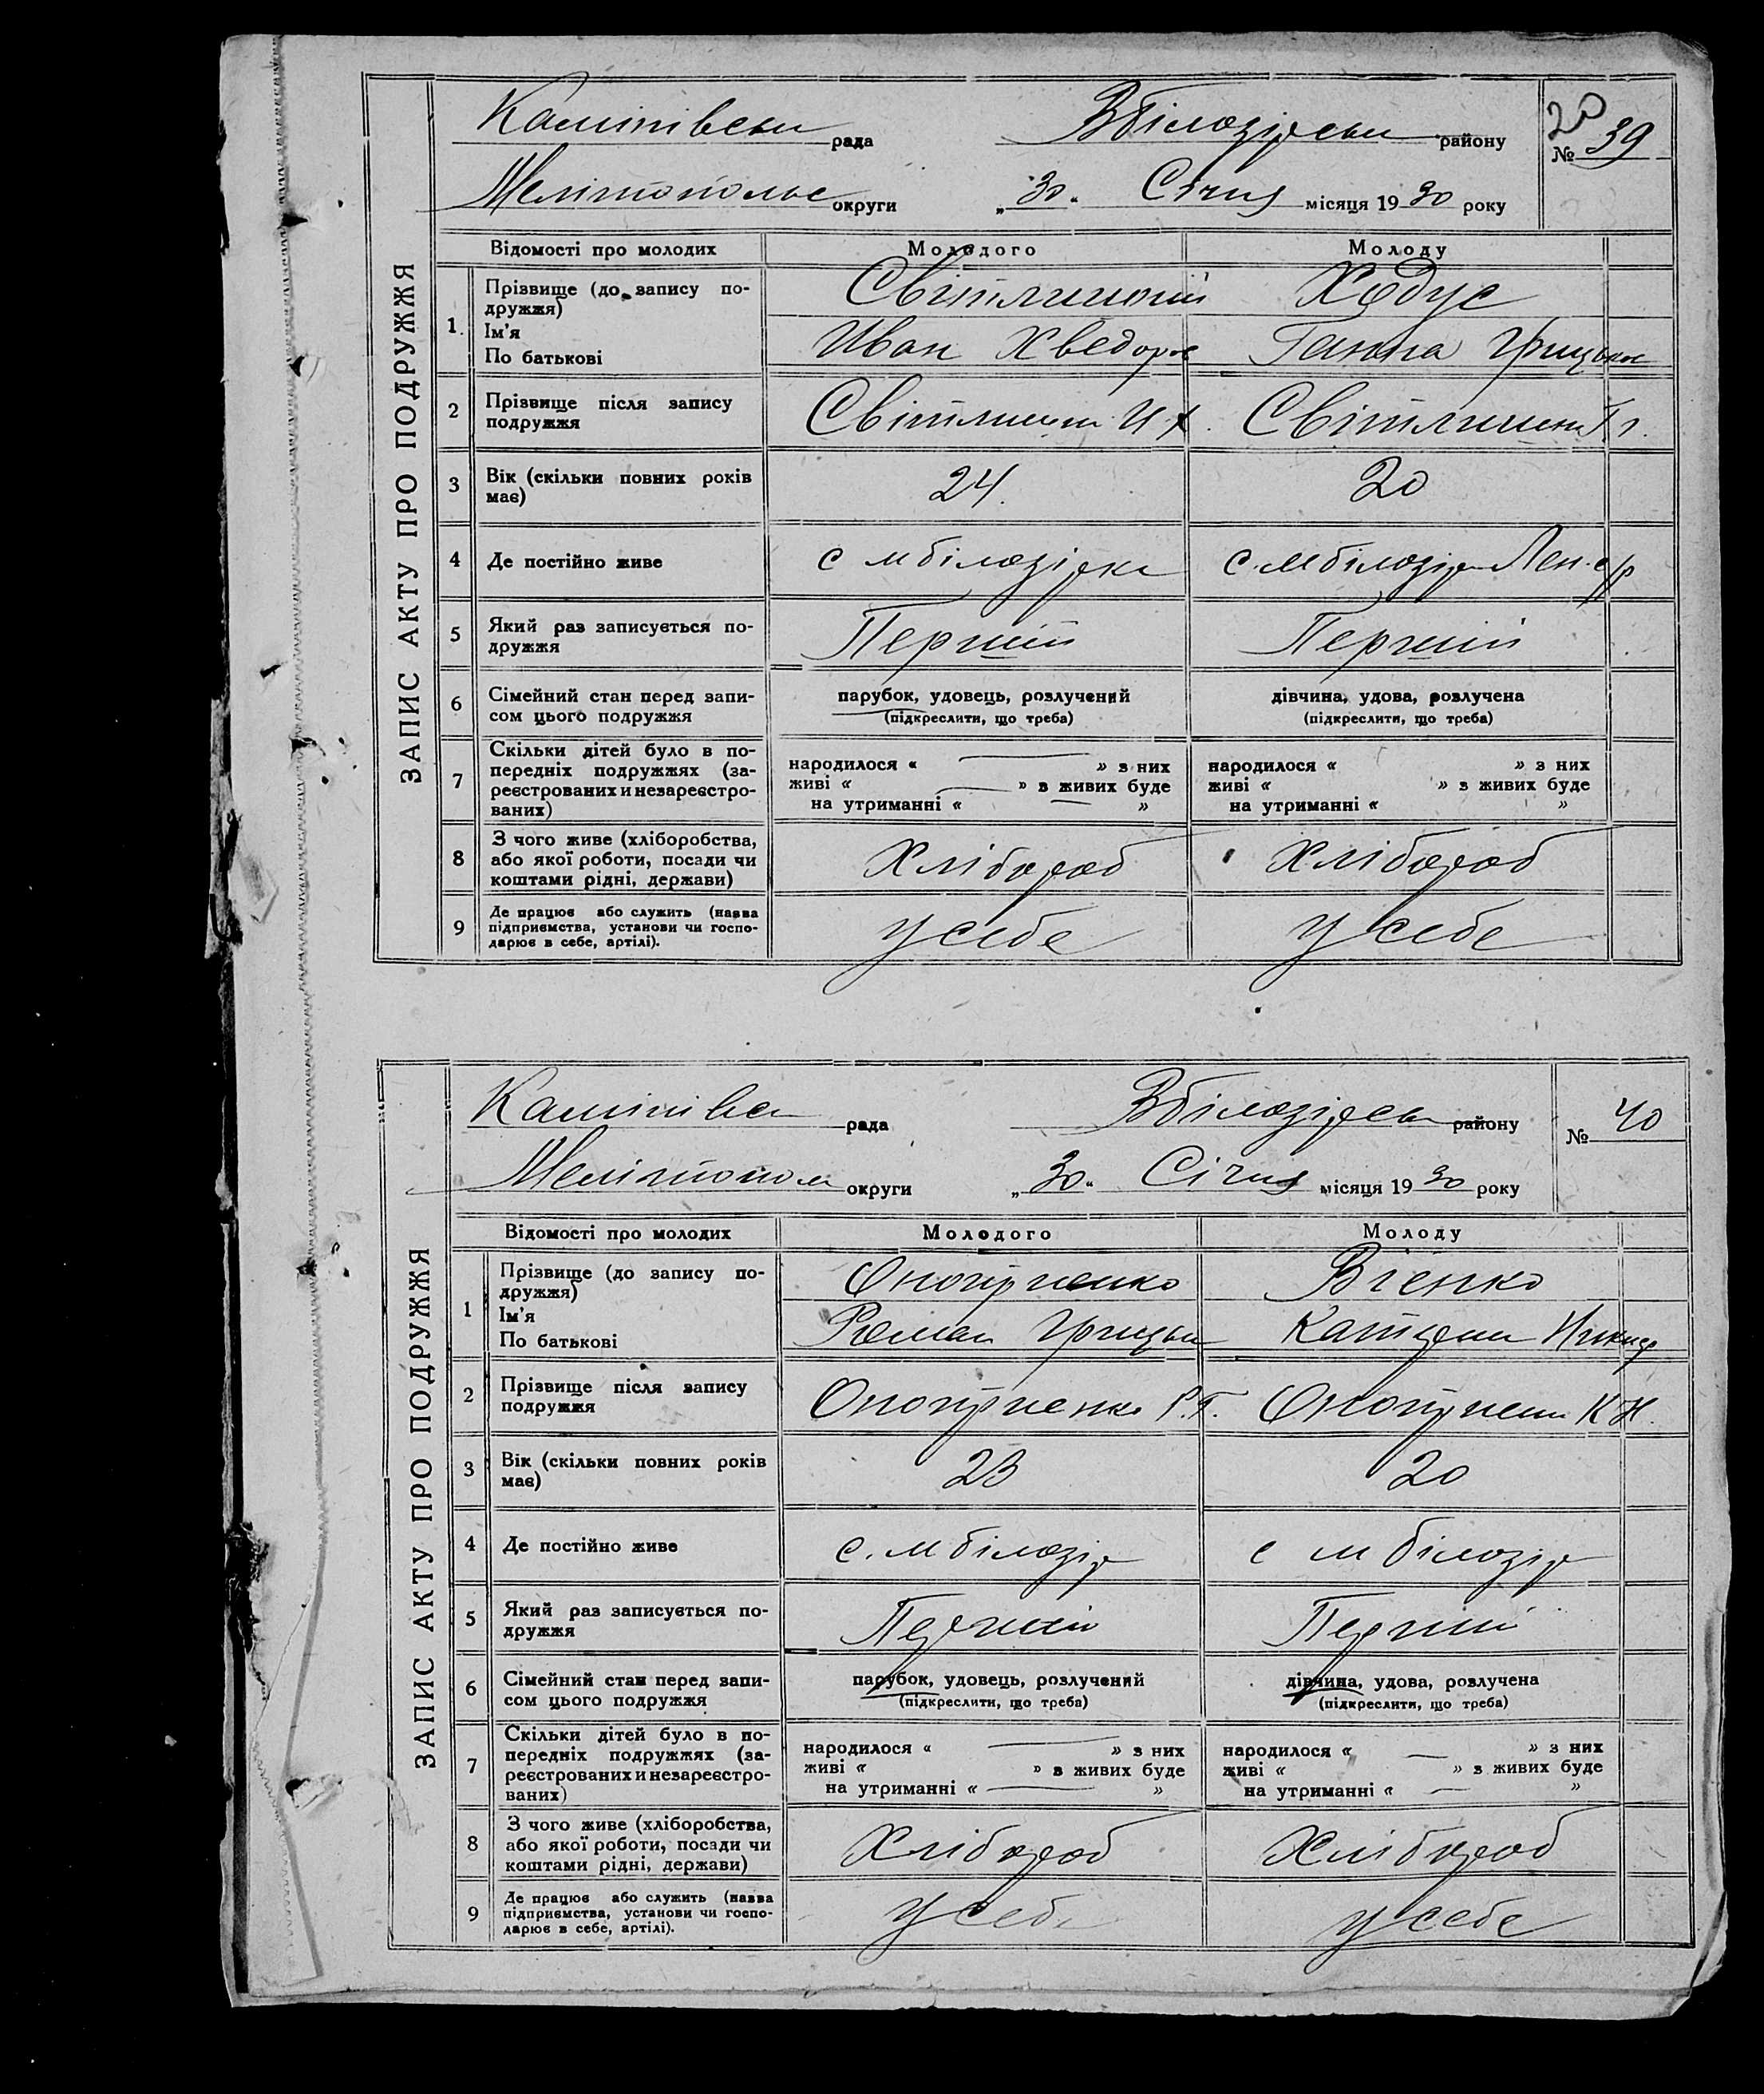 ЗАПИС АКТУ ПРО ПОДРУЖЖЯ
рада Вбілозірськ району
20
№ 39
Мелітопольс округи „30“ Січня місяця 1930 року
Відомості про молодих Молодого Молоду
1. Прізвище (до запису по-
дружжя)
Ім'я
По батькові
Ходус
Иван Хведоров Ганна Грицьков
2 Прізвище після запису
подружжя
3 Вік (скільки повних років
має)
24. 20
4 Де постійно живе с мбілозірка с. мбілозір Лен. с/р
5 Який раз записується по-
дружжя
Перший Перший
6 Сімейний стан перед запи-
сом цього подружжя
парубок, удовець, розлучений дівчина, удова, розлучена
(підкреслити, що треба) (підкреслити, що треба)
7 Скільки дітей було в по-
передніх подружжях (за-
реєстрованих и незареєстро-
ваних)
народилося « — » з них народилося « » з них
живі « — » в живих буде живі « » з живих буде
на утриманні « — » на утриманні « »
8 З чого живе (хліборобства,
або якої роботи, посади чи
коштами рідні, держави)
Хлібороб Хлібороб
9 Де працює або служить (назва
підприємства, установи чи госпо-
дарює в себе, артілі).
у себе у себе
ЗАПИС АКТУ ПРО ПОДРУЖЖЯ
рада Вбілозірськ району
№ 40
Мелітопол округи „30“ Січня місяця 1930 року
Відомості про молодих Молодого Молоду
1 Прізвище (до запису по-
дружжя)
Ім'я
По батькові
Оноприенко
Роман Грицьк Катерин
2 Прізвище після запису
подружжя
Оноприенко Р.Г. Оноприенк К Н.
3 Вік (скільки повних років
має)
23 20
4 Де постійно живе с. мбілозір с м білозір
5 Який раз записується по-
дружжя
Перший Перший
6 Сімейний стан перед запи-
сом цього подружжя
парубок, удовець, розлучений дівчина, удова, розлучена
(підкреслити, що треба) (підкреслити, що треба)
7 Скільки дітей було в по-
передніх подружжях (за-
реєстрованих и незареєстро-
ваних)
народилося « — » з них народилося « — » з них
живі « » в живих буде живі « » з живих буде
на утриманні « — » на утриманні « — »
8 З чого живе (хліборобства,
або якої роботи, посади чи
коштами рідні, держави)
Хлібороб Хлібороб
9 Де працює або служить (назва
підприємства, установи чи госпо-
дарює в себе, артілі).
у себе у себе